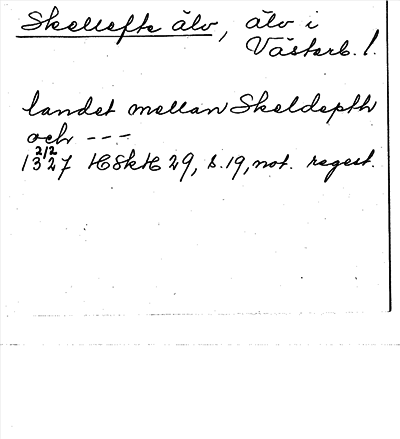 Skellefte älv, älv i
Västerb. l.
landet mellan Skeldepth
och - - -
1327 2/2 HSkH 29, s. 19, not. regest.